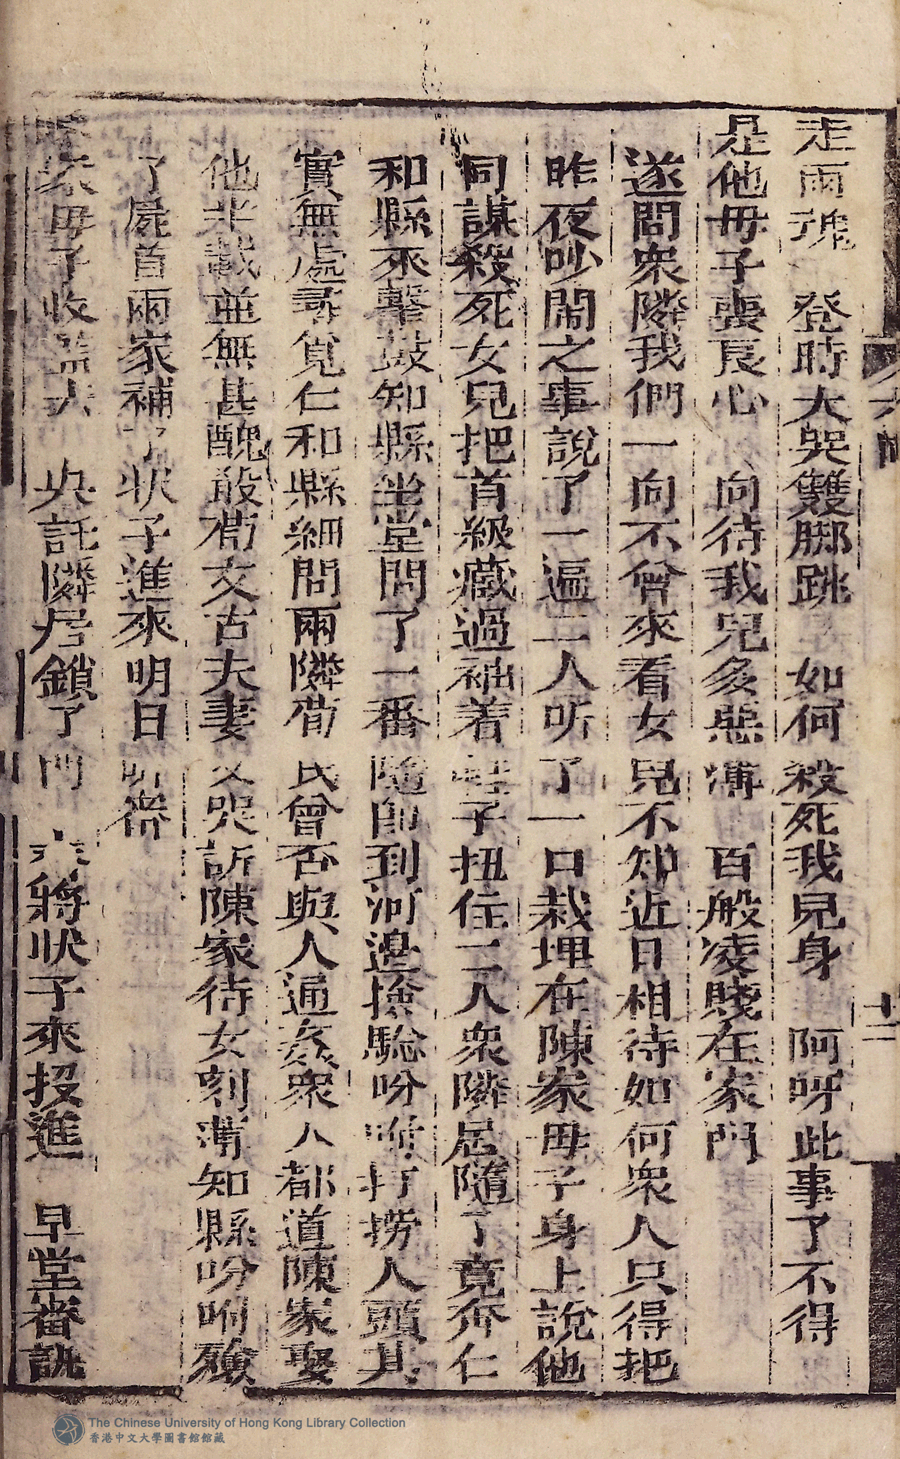 走兩魂 登時大哭雙脚跳 如何殺死我兒身 阿呀此事了不得
是他毋子喪良心 向待我兒多惡薄 百般凌賤在家門
遂問衆隣我們一向不曾來看女兒不知近日相待如何衆人只得把
昨夜吵鬧之事說了一遍二人听了一口栽埋在陳家毋子身上說他
同謀殺死女兒把首級藏過袖着 子扭住二人衆隣居隨了竟奔仁
和縣來擊鼓知縣坐堂問了一番隨即到河邊撿驗吩咐打撈人頭其
實無處尋覓仁和縣細問兩隣 氏曾否與人通姦衆人都道陳家娶
他半載並無甚醜 文古夫妻又哭訴陳家待女刻薄知縣吩咐殮
了屍首兩家補了状子進來明日听審
家毋子收 去 央託隣居鎖了門 將状子來投進 早堂審訊
十二
The Chinese University of Hong Kong Library Collection
香港中文大學圖書館館藏